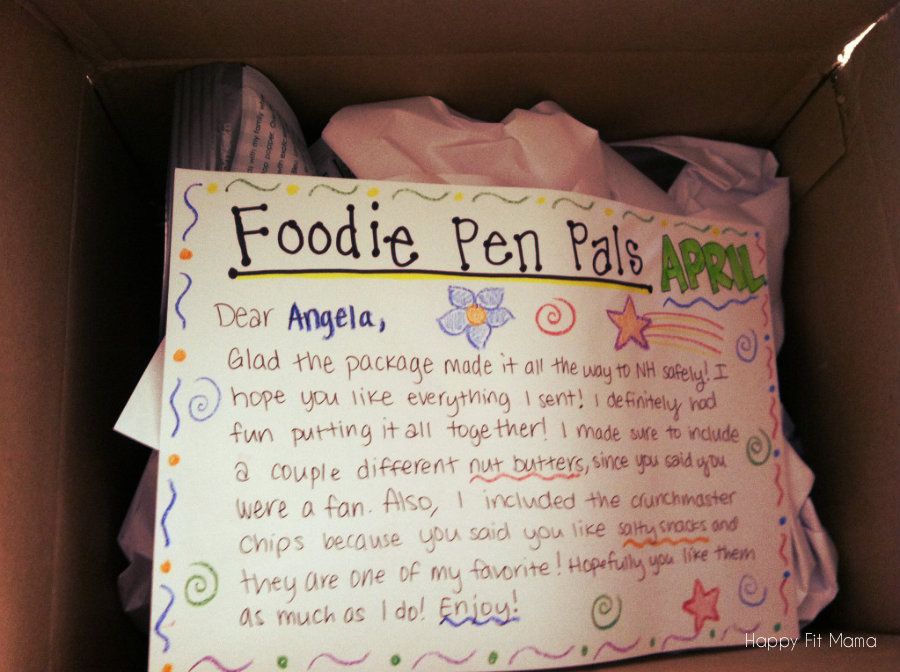 Foodie Pen Pals APRIL
Dear Angela,
Glad the package made it all the way to NH safely! I
hope you like everything I sent! I definitely had
fun putting it all together! I made sure to include
a couple different nut butters, since you said you
were a fan. Also, I included the crunchmaster
chips because you said you like salty snacks and
they are one of my favorite! Hopefully you like them
as much as I do! Enjoy!
Happy Fit Mama